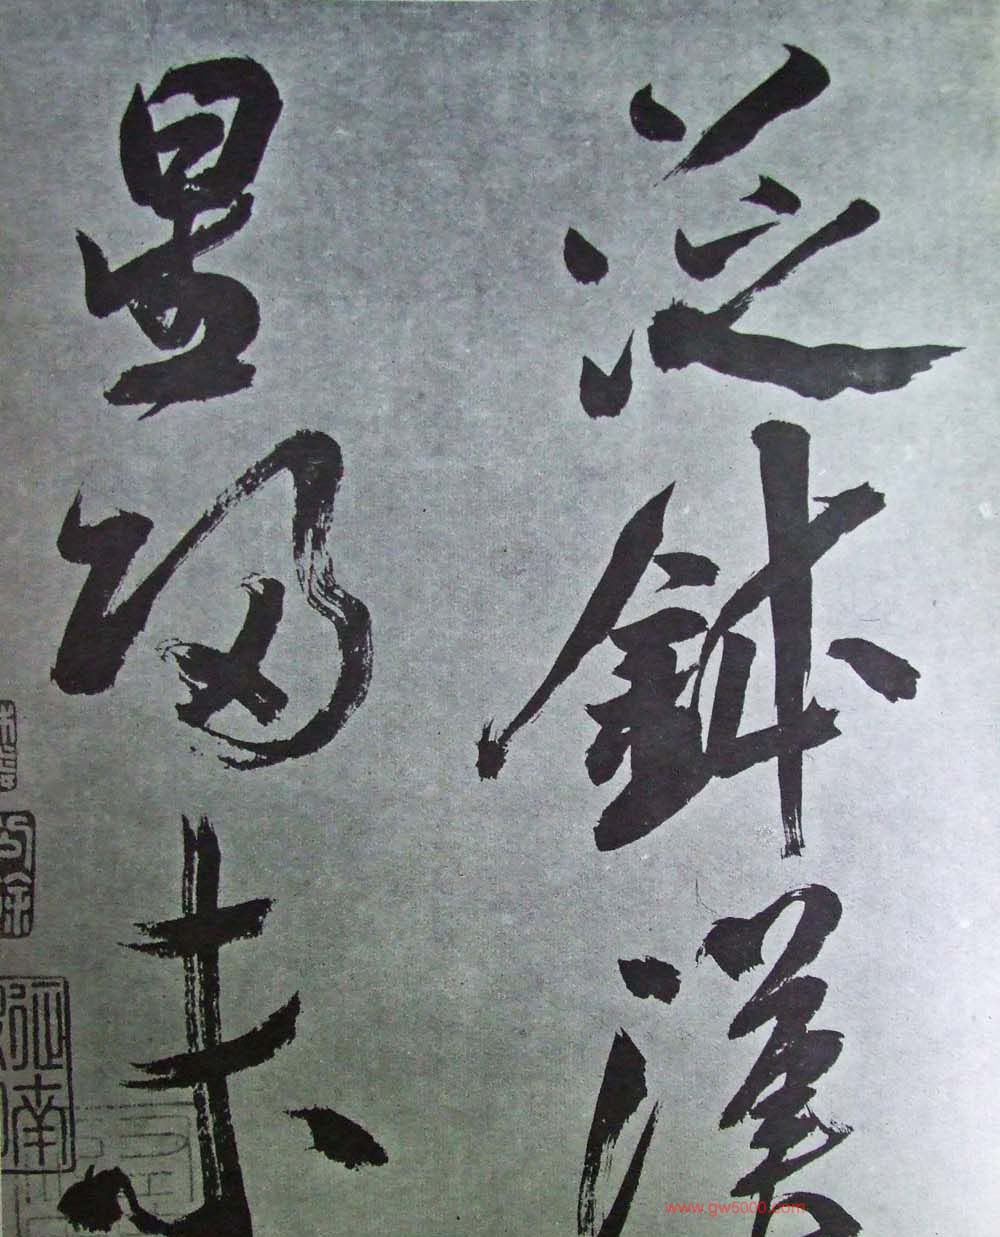 泛鉢漢
星歸未
www.gw5000.com